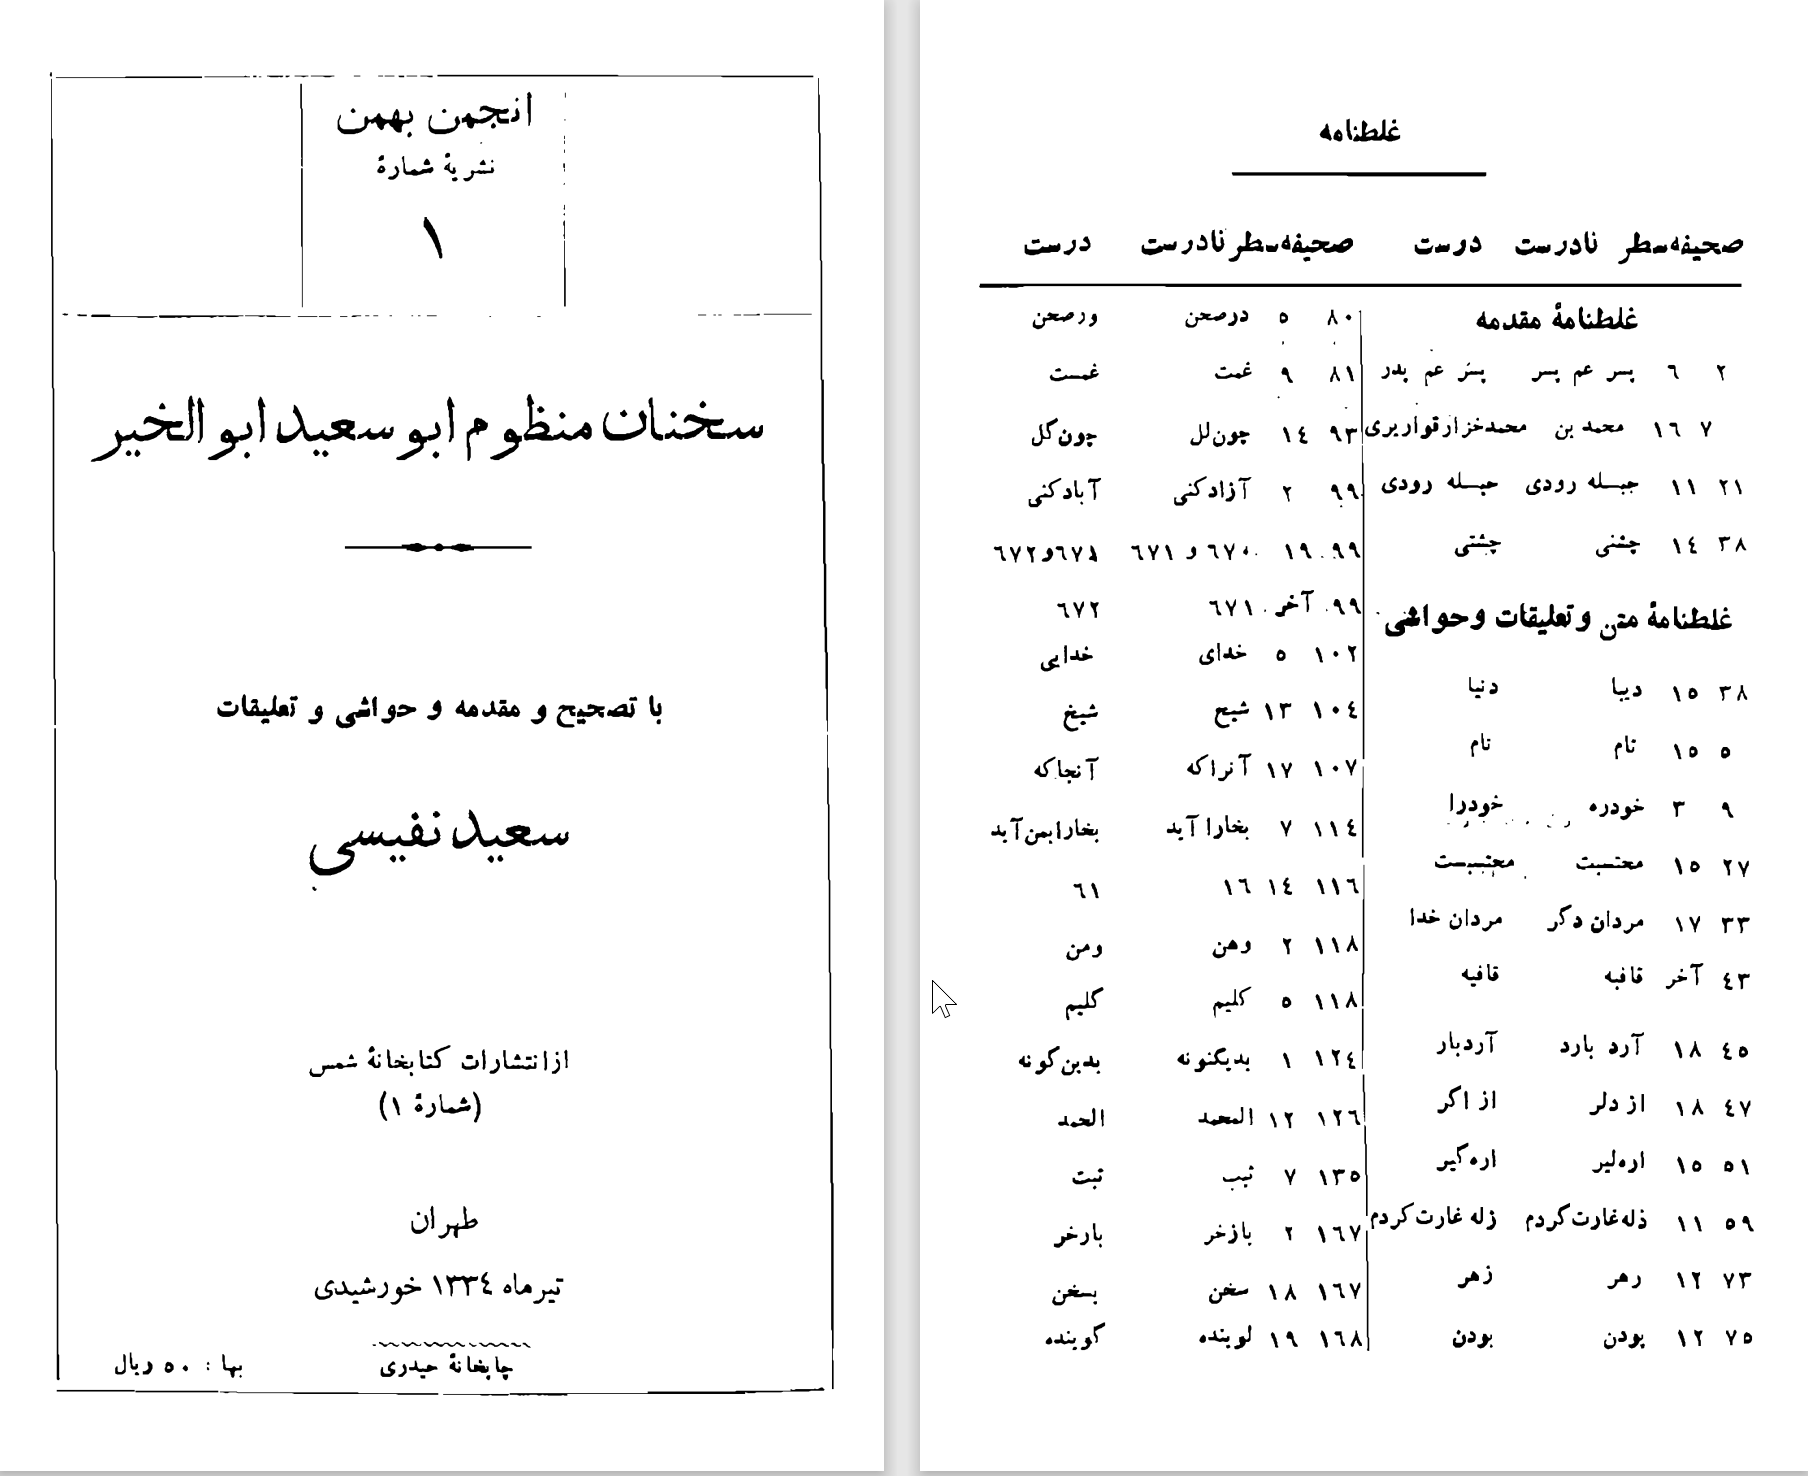 انجمن بهمن
نشریهٔ شمارهٔ
۱
سخنان منظوم ابوسعید ابوالخیر
با تصحیح و مقدمه و حواشی و تعلیقات
سعید نفیسی
از انتشارات کتابخانهٔ شمس
(شمارهٔ ۱)
طهران
تیرماه ۱۳۳٤ خورشیدی
چاپخانهٔ حیدری
بها : ۵۰ ریال
غلطنامه
صحیفه سطر نادرست درست
غلطنامهٔ مقدمه
۲ ٦ پسر عم پسر پسر عم پدر
۷ ۱٦ محمد بن محمدخزازقواریری
۲۱ ۱۱ جبله رودی حبله رودی
۳۸ ۱٤ چشنی چشتی
غلطنامهٔ متن و تعلیقات و حواشی
۳۸ ۱۵ دیبا دنیا
۵ ۱۵ تام نام
۹ ۳ خودره خودرا
۲۷ ۱۵ محتسبت محتسبست
۳۳ ۱۷ مردان دگر مردان خدا
٤۳ آخر قافبه قافیه
٤۵ ۱۸ آرد بارد آردبار
٤۷ ۱۸ از دلر از اگر
۵۱ ۱۵ اره‌لیر اره‌گیر
۵۹ ۱۱ ذله غارت کردم زله غارت کردم
۷۳ ۱۲ رهر زهر
۷۵ ۱۲ پودن بودن
صحیفه سطر نادرست درست
۸۰ ۵ درصحن ورصحن
۸۱ ۹ غمت غمست
۹۳ ۱٤ چون‌لل چون‌گل
۹۹ ۲ آزادکنی آبادکنی
۹۹ ۱۹ ٦۷۰ و ٦۷۱ ٦۷۱و٦۷۲
۹۹ آخر ٦۷۱ ٦۷۲
۱۰۲ ۵ خدای خدایی
۱۰٤ ۱۳ شیح شیخ
۱۰۷ ۱۷ آنراکه آنجاکه
۱۱٤ ۷ بخارا آید بخارابمن آید
۱۱٦ ۱٤ ۱٦ ٦۱
۱۱۸ ۲ وهن ومن
۱۱۸ ۵ کلیم گلیم
۱۲٤ ۱ بدیگنونه بدین گونه
۱۲٦ ۱۲ المحمد الحمد
۱۳۵ ۷ ثیب ثبت
۱٦۷ ۲ بازخر بارخر
۱٦۷ ۱۸ سخن بسخن
۱٦۸ ۱۹ لوینده گوینده